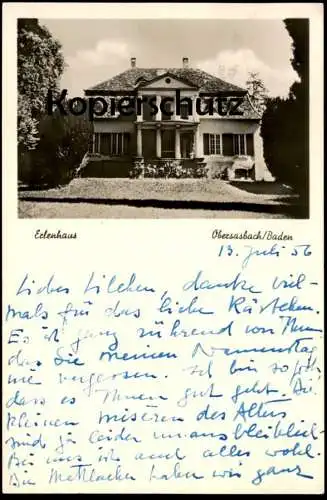 Kopierschutz
Erlenhaus
Obersasbach/Baden
13. Juli 56
Liebes Lilchen, danke viel-
mals für das liebe Kärtchen.
Es ist ganz rührend von Ihnen
das Sie meinen Namenstag
nie vergessen. bin so froh
dass es Ihnen gut geht. Die
kleinen miseren des Alters
sind ja leider unausbleiblich.
Bei uns ist auch alles wohl.
Die haben wir ganz